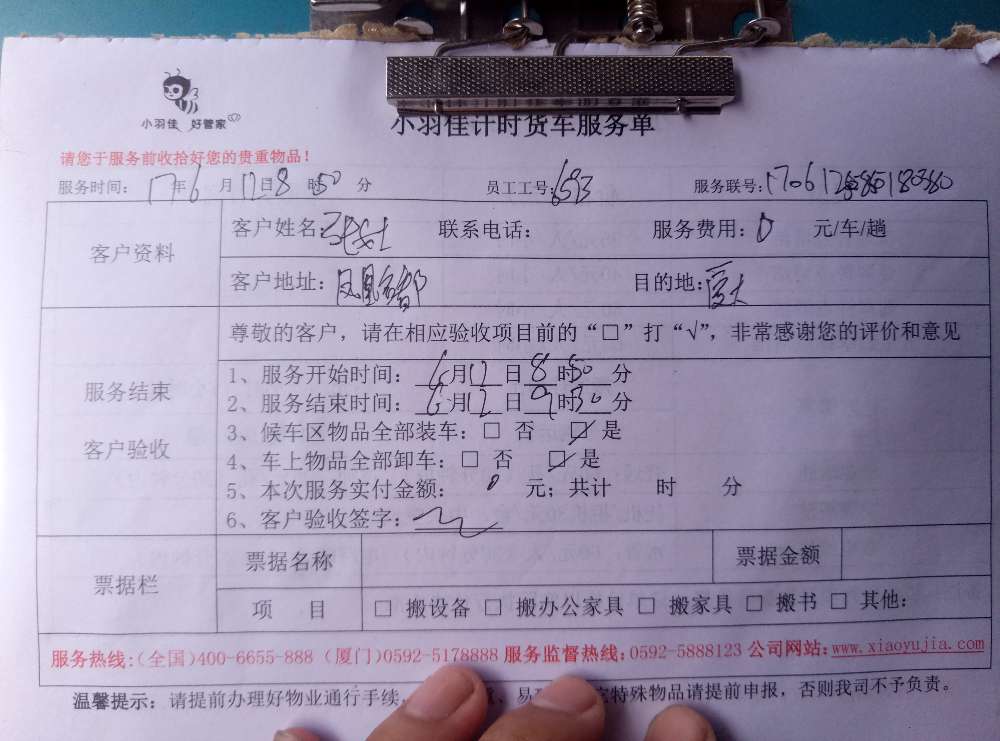 小羽佳 好管家
小羽佳计时货车服务单
请您于服务前收拾好您的贵重物品！
服务时间：17年6月12日8时50分 员工工号：653 服务联号：
客户资料 客户姓名： 联系电话： 服务费用：0 元/车/趟
客户地址：凤凰 都 目的地：厦大
尊敬的客户，请在相应验收项目前的“□”打“√”，非常感谢您的评价和意见
服务结束
客户验收
1、服务开始时间：6月12日8时50分
2、服务结束时间：6月12日9时30分
3、候车区物品全部装车：□ 否 ☑ 是
4、车上物品全部卸车：□ 否 ☑ 是
5、本次服务实付金额：0 元；共计 时 分
6、客户验收签字：
票据栏 票据名称 票据金额
项 目 □ 搬设备 □ 搬办公家具 □ 搬家具 □ 搬书 □ 其他：
服务热线：(全国)400-6655-888 (厦门)0592-5178888 服务监督热线：0592-5888123 公司网站：www.xiaoyujia.com
温馨提示：请提前办理好物业通行手续， 、易 特殊物品请提前申报，否则我司不予负责。